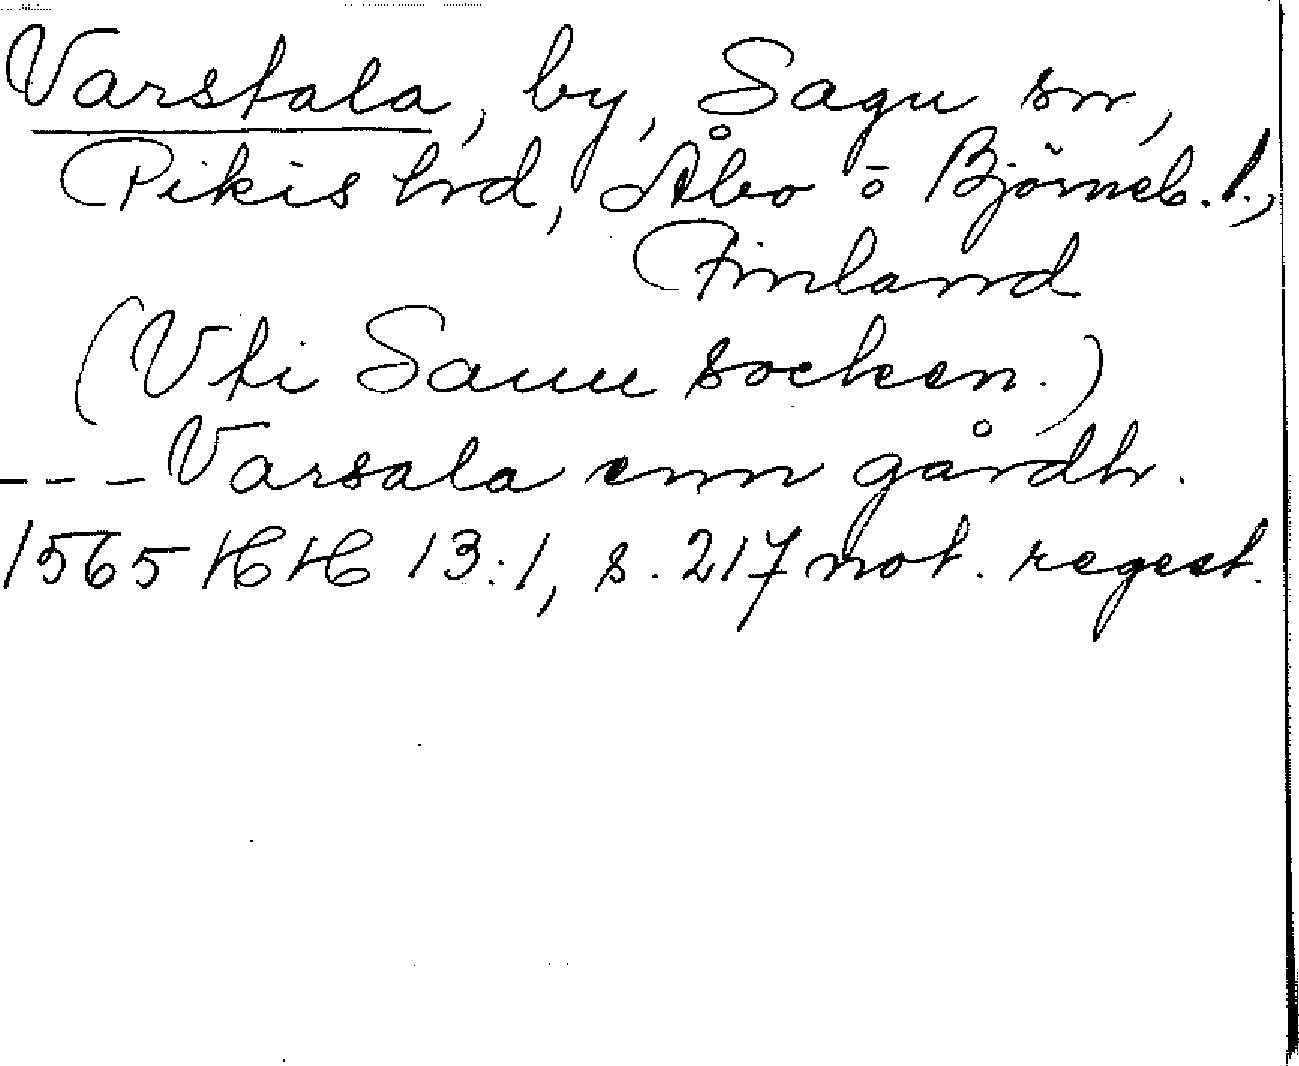 Varstala, by, Sagu sn,
Pikis hrd, Åbo o Björneb. l.,
Finland
(Vti Sauu socken.)
--- Varsala enn gårdh.
1565 HH 13:1, s. 217 not. regest.